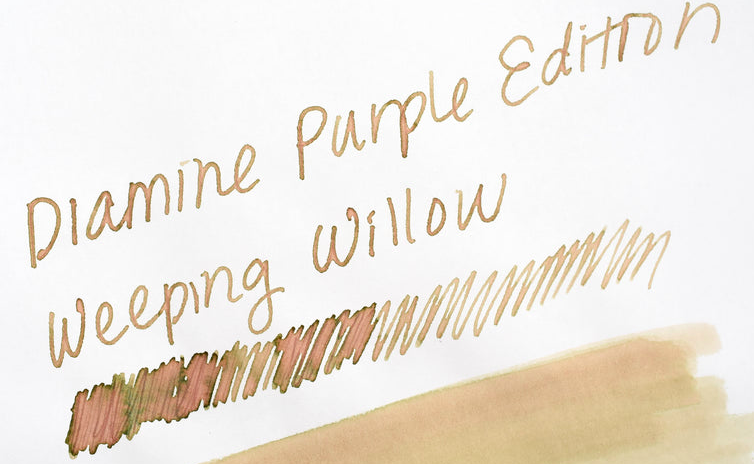 Diamine Purple Edition
Weeping Willow